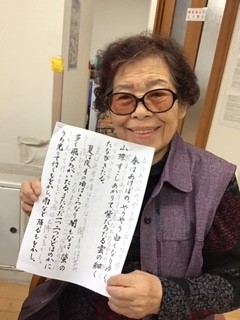 春はあけぼの。やうやう白くなりゆく
山際すこしあかりて、紫だちたる雲の細く
たなびきたる。
夏は夜。月の頃はさらなり、闇もなほ、螢の
多く飛びちがひたる。ただ一つ二つなどほのかに
うち光りて行くもをかし。雨など降るもをかし。